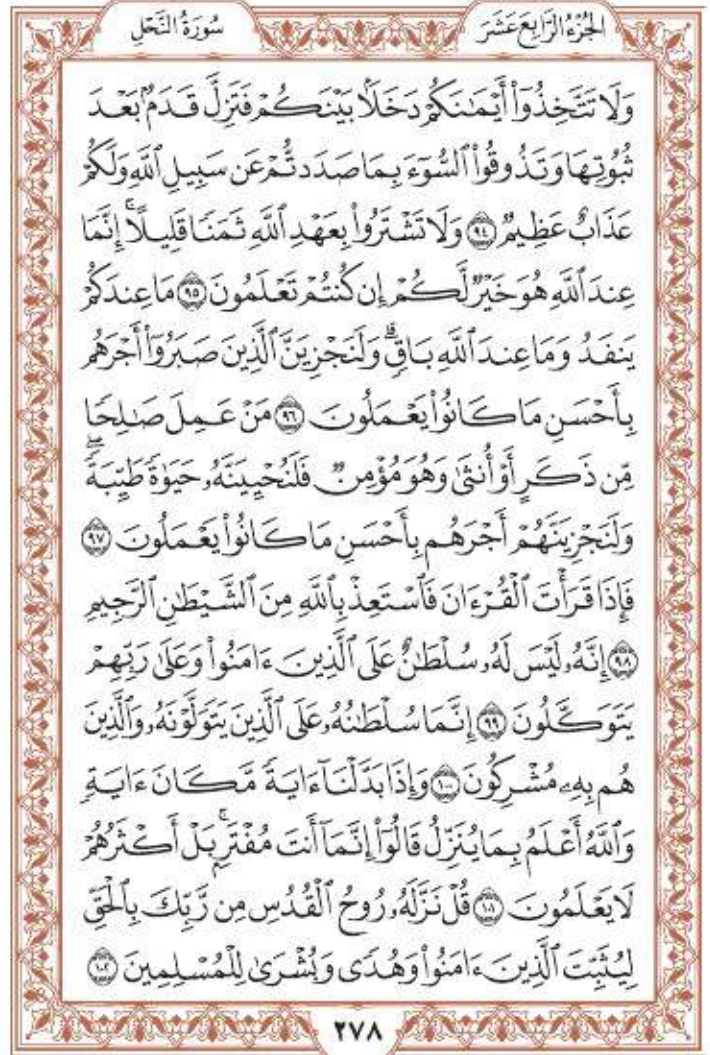 الجُزْءُ الرَّابِعَ عَشَرَ
سُورَةُ النَّحْلِ
وَلَا تَتَّخِذُوٓاْ أَيۡمَٰنَكُمۡ دَخَلَۢا بَيۡنَكُمۡ فَتَزِلَّ قَدَمُۢ بَعۡدَ
ثُبُوتِهَا وَتَذُوقُواْ ٱلسُّوٓءَ بِمَا صَدَدتُّمۡ عَن سَبِيلِ ٱللَّهِ وَلَكُمۡ
عَذَابٌ عَظِيمٞ ٩٤ وَلَا تَشۡتَرُواْ بِعَهۡدِ ٱللَّهِ ثَمَنٗا قَلِيلًاۚ إِنَّمَا
عِندَ ٱللَّهِ هُوَ خَيۡرٞ لَّكُمۡ إِن كُنتُمۡ تَعۡلَمُونَ ٩٥ مَا عِندَكُمۡ
يَنفَدُ وَمَا عِندَ ٱللَّهِ بَاقٖۗ وَلَنَجۡزِيَنَّ ٱلَّذِينَ صَبَرُوٓاْ أَجۡرَهُم
بِأَحۡسَنِ مَا كَانُواْ يَعۡمَلُونَ ٩٦ مَنۡ عَمِلَ صَٰلِحٗا
مِّن ذَكَرٍ أَوۡ أُنثَىٰ وَهُوَ مُؤۡمِنٞ فَلَنُحۡيِيَنَّهُۥ حَيَوٰةٗ طَيِّبَةٗۖ
وَلَنَجۡزِيَنَّهُمۡ أَجۡرَهُم بِأَحۡسَنِ مَا كَانُواْ يَعۡمَلُونَ ٩٧
فَإِذَا قَرَأۡتَ ٱلۡقُرۡءَانَ فَٱسۡتَعِذۡ بِٱللَّهِ مِنَ ٱلشَّيۡطَٰنِ ٱلرَّجِيمِ
٩٨ إِنَّهُۥ لَيۡسَ لَهُۥ سُلۡطَٰنٌ عَلَى ٱلَّذِينَ ءَامَنُواْ وَعَلَىٰ رَبِّهِمۡ
يَتَوَكَّلُونَ ٩٩ إِنَّمَا سُلۡطَٰنُهُۥ عَلَى ٱلَّذِينَ يَتَوَلَّوۡنَهُۥ وَٱلَّذِينَ
هُم بِهِۦ مُشۡرِكُونَ ١٠٠ وَإِذَا بَدَّلۡنَآ ءَايَةٗ مَّكَانَ ءَايَةٖ
وَٱللَّهُ أَعۡلَمُ بِمَا يُنَزِّلُ قَالُوٓاْ إِنَّمَآ أَنتَ مُفۡتَرِۭۚ بَلۡ أَكۡثَرُهُمۡ
لَا يَعۡلَمُونَ ١٠١ قُلۡ نَزَّلَهُۥ رُوحُ ٱلۡقُدُسِ مِن رَّبِّكَ بِٱلۡحَقِّ
لِيُثَبِّتَ ٱلَّذِينَ ءَامَنُواْ وَهُدٗى وَبُشۡرَىٰ لِلۡمُسۡلِمِينَ ١٠٢
٢٧٨